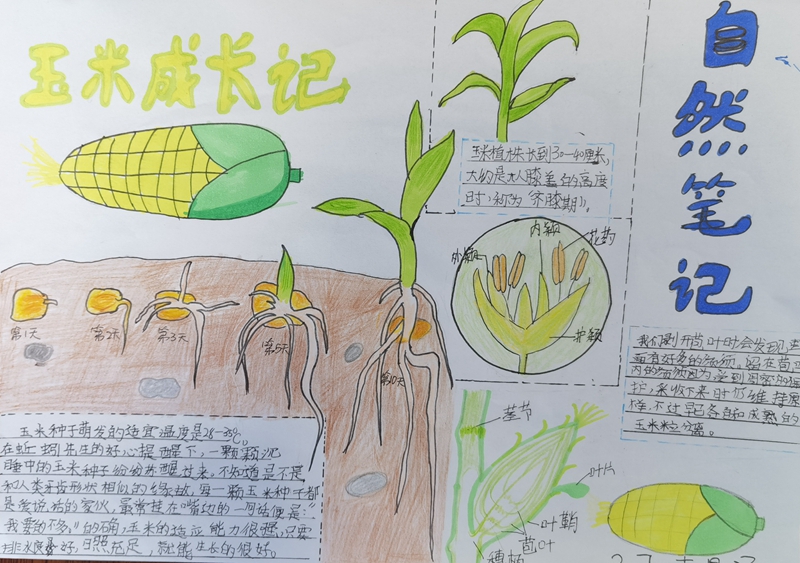 玉米成长记
自然笔记
玉米植株长到30-40厘米,
大约是大人膝盖的高度
时,称为“齐膝期”。
外颖
内颖
花药
护颖
第1天
第2天
第3天
第5天
第10天
我们剥开苞叶时会发现
面有好多的须,留在苞
内的须因为受到
护,采收下来时仍维持
样,不过早已各自和成熟的
玉米粒分离。
玉米种子萌发的适宜温度是28-35℃。
在蚯蚓先生的好心提醒下,一颗颗沉
睡中的玉米种子纷纷苏醒过来,不知道是不是
和人类牙齿形状相似的缘故,每一颗玉米种子都
是爱说话的家伙,最常挂在嘴边的一句话便是:“
我要的不多。”的确,玉米的适应能力很强,只要
排水良好,日照充足,就能生长的很好。
茎节
叶片
叶鞘
苞叶